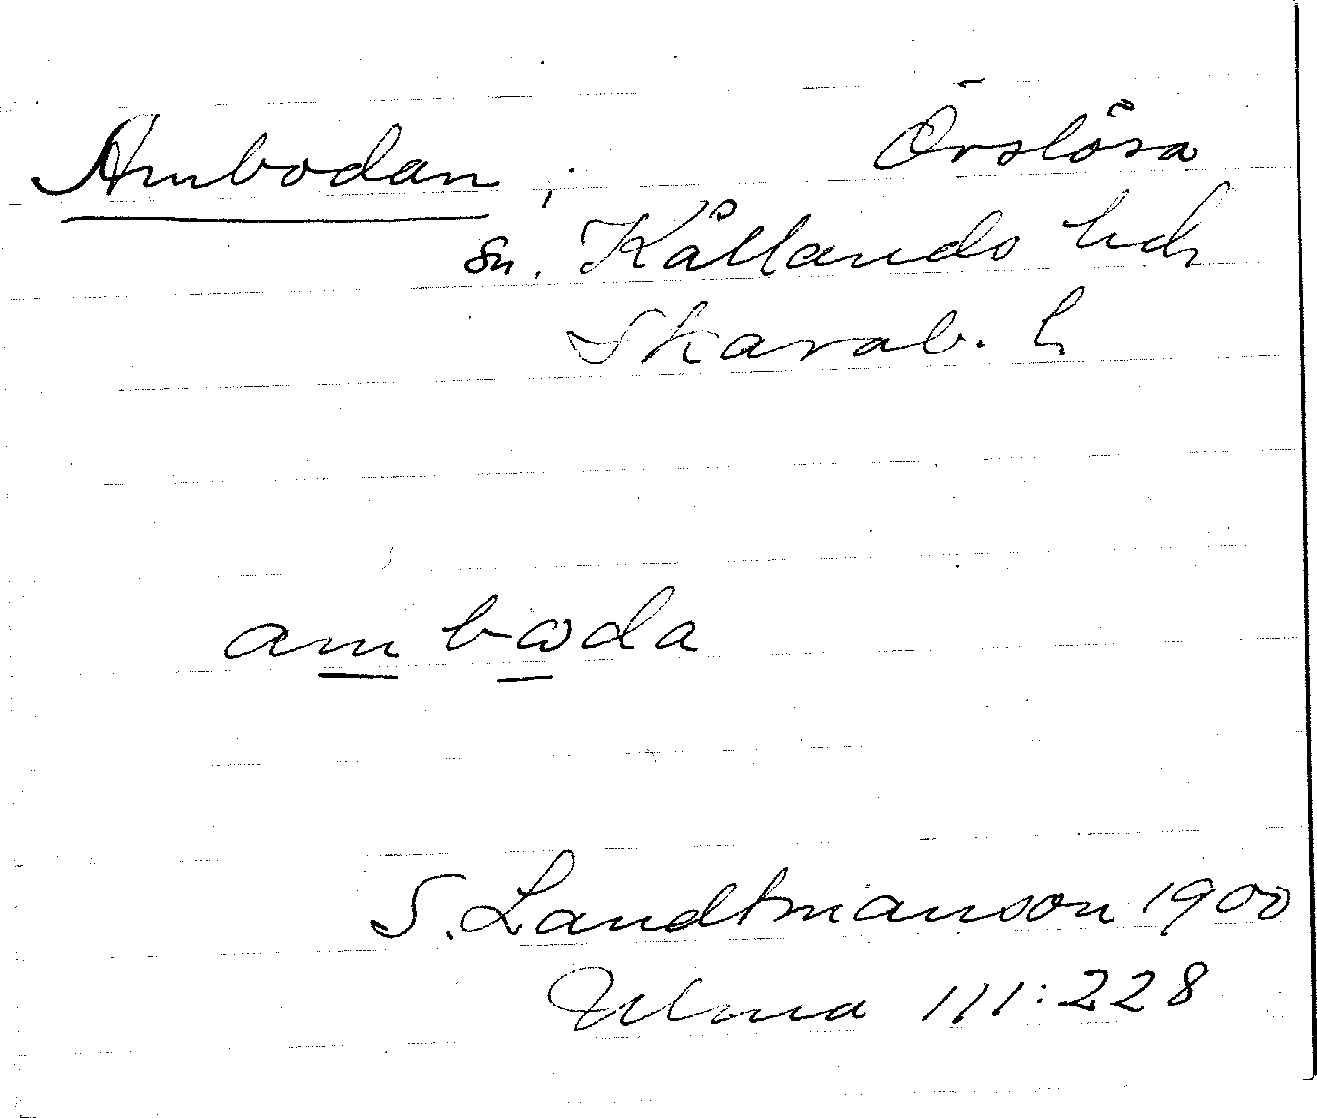 Ambodan, Örslösa
sn. Kållands hd,
Skarab. l.
ambωda
S. Landtmanson 1900
Ulma 111:228